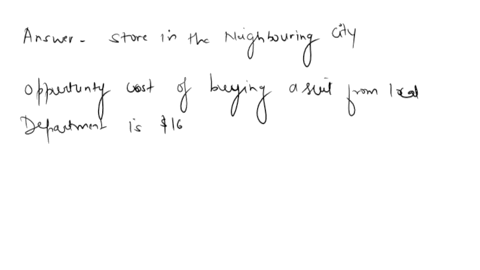 Answer - Store in the Neighbouring City
Opportunity cost of buying a suit from local
Department is $16